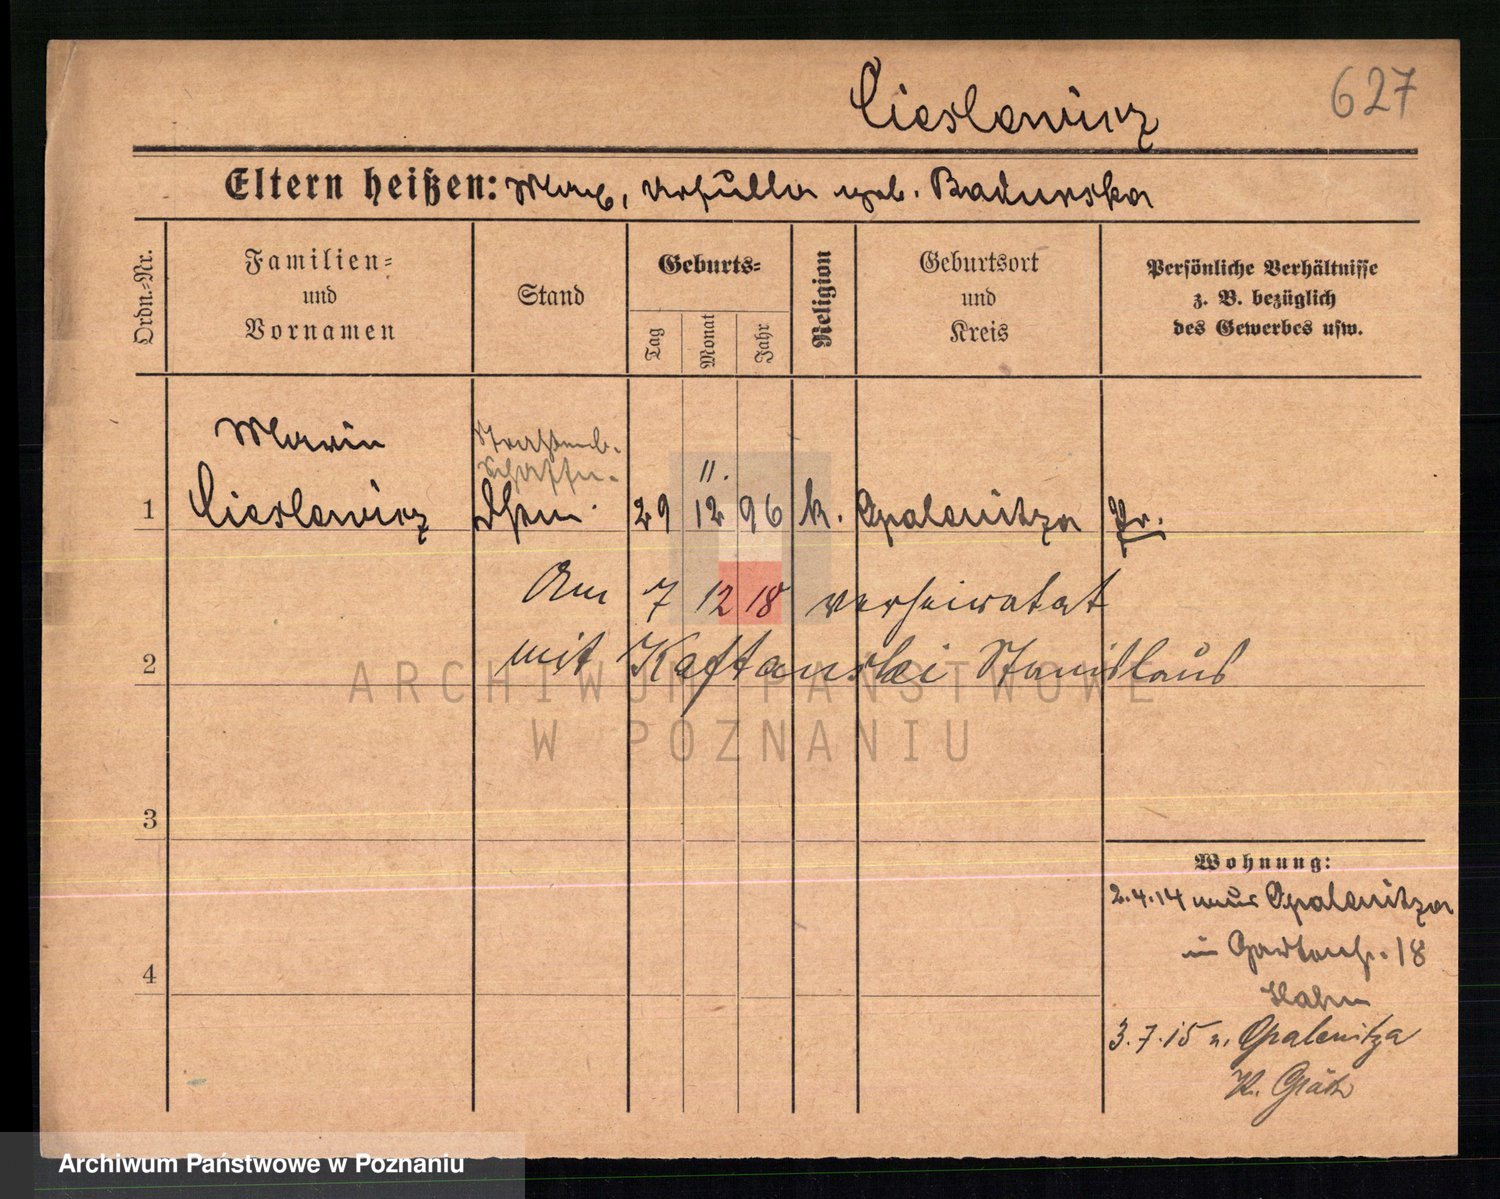 Cieslewicz
627
Eltern heißen: Max, Ursulla geb. Badurska
Ordn.-Nr.
Familien-
und
Vornamen
Stand
Geburts-
Tag
Monat
Jahr
Religion
Geburtsort
und
Kreis
Persönliche Verhältnisse
z. B. bezüglich
des Gewerbes usw.
Maria
Straßenb.
Schaffn.
11.
1 Cieslewicz 29 12 96 k. Opalenitza Pr.
Am 7 12 18 verheiratat
2 mit Kaftanski Stanislaus
ARCHIWUM PAŃSTWOWE
W POZNANIU
3
Wohnung:
2.4.14 aus Opalenitza
in Gartenstr. 18
4
3.7.15 n. Opalenitza
K. Grätz
Archiwum Państwowe w Poznaniu